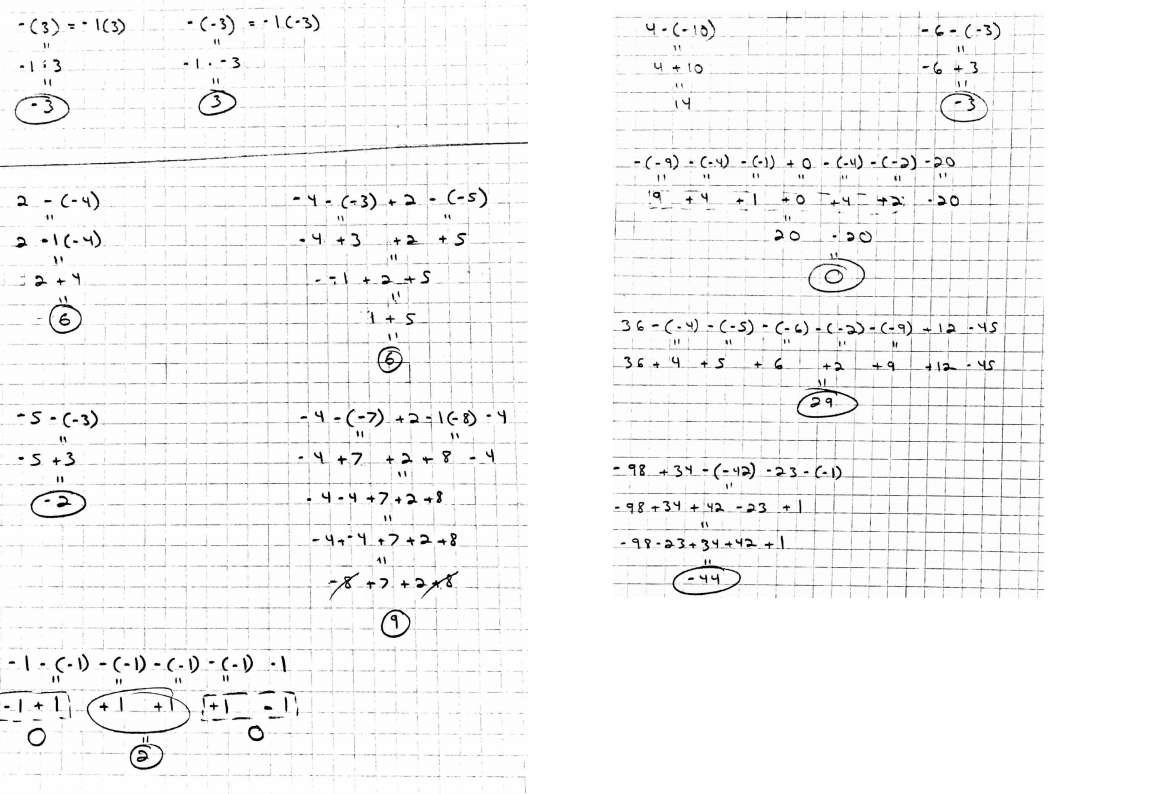 -(3) = -1(3)
"
-1 · 3
"
-3
-(-3) = -1(-3)
"
-1 · -3
"
3
2 - (-4)
"
2 -1(-4)
"
2 + 4
"
6
-4 - (-3) + 2 - (-5)
" "
-4 +3 +2 +5
"
-1 + 2 + 5
"
1 + 5
"
6
-5 - (-3)
"
-5 +3
"
-2
-4 - (-7) +2 -1(-8) -4
" "
-4 +7 +2 +8 -4
"
-4 -4 +7 +2 +8
"
-4 + -4 +7 +2 +8
"
-8 +7 +2 +8
9
-1 - (-1) - (-1) - (-1) - (-1) -1
" " " "
-1 + 1 +1 +1 +1 -1
0 " 0
2
4 - (-10)
"
4 + 10
"
14
-6 - (-3)
"
-6 + 3
"
-3
-(-9) - (-4) - (-1) + 0 - (-4) - (-2) - 20
" " " " " " "
9 +4 +1 +0 +4 +2 -20
"
20 -20
"
0
36 - (-4) - (-5) - (-6) - (-2) - (-9) + 12 - 45
" " " " "
36 + 4 + 5 + 6 +2 +9 +12 -45
"
29
-98 + 34 - (-42) - 23 - (-1)
"
-98 +34 + 42 -23 +1
"
-98 -23 +34 +42 +1
"
-44